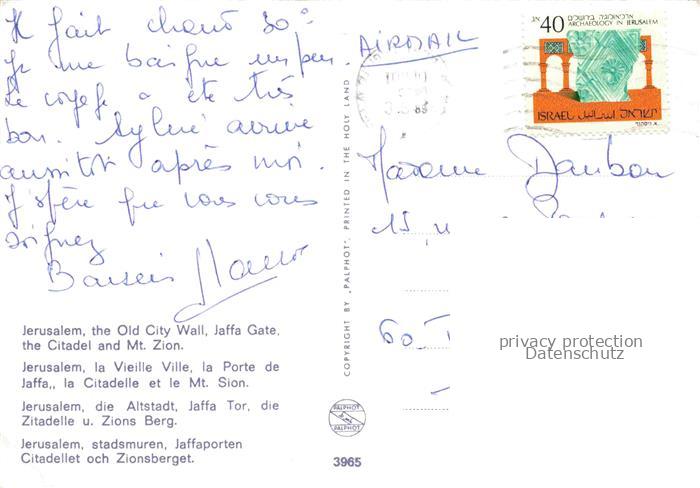 Il fait chaud 30°
Je me baigne un peu.
Le voyage a été très
bon. Sylvie arrive
aussitôt après moi.
J'espère que vous vous
soignez
Baisers
Jerusalem, the Old City Wall, Jaffa Gate,
the Citadel and Mt. Zion.
Jerusalem, la Vieille Ville, la Porte de
Jaffa,, la Citadelle et le Mt. Sion.
Jerusalem, die Altstadt, Jaffa Tor, die
Zitadelle u. Zions Berg.
Jerusalem, stadsmuren, Jaffaporten
Citadellet och Zionsberget.
COPYRIGHT BY „PALPHOT", PRINTED IN THE HOLY LAND
PALPHOT
PALPHOT
3965
AIRMAIL
40 אג
ארכיאולוגיה בירושלים
ARCHAEOLOGY IN JERUSALEM
ISRAEL اسرائيل ישראל
Madame Daubon
15,
60
privacy protection
Datenschutz